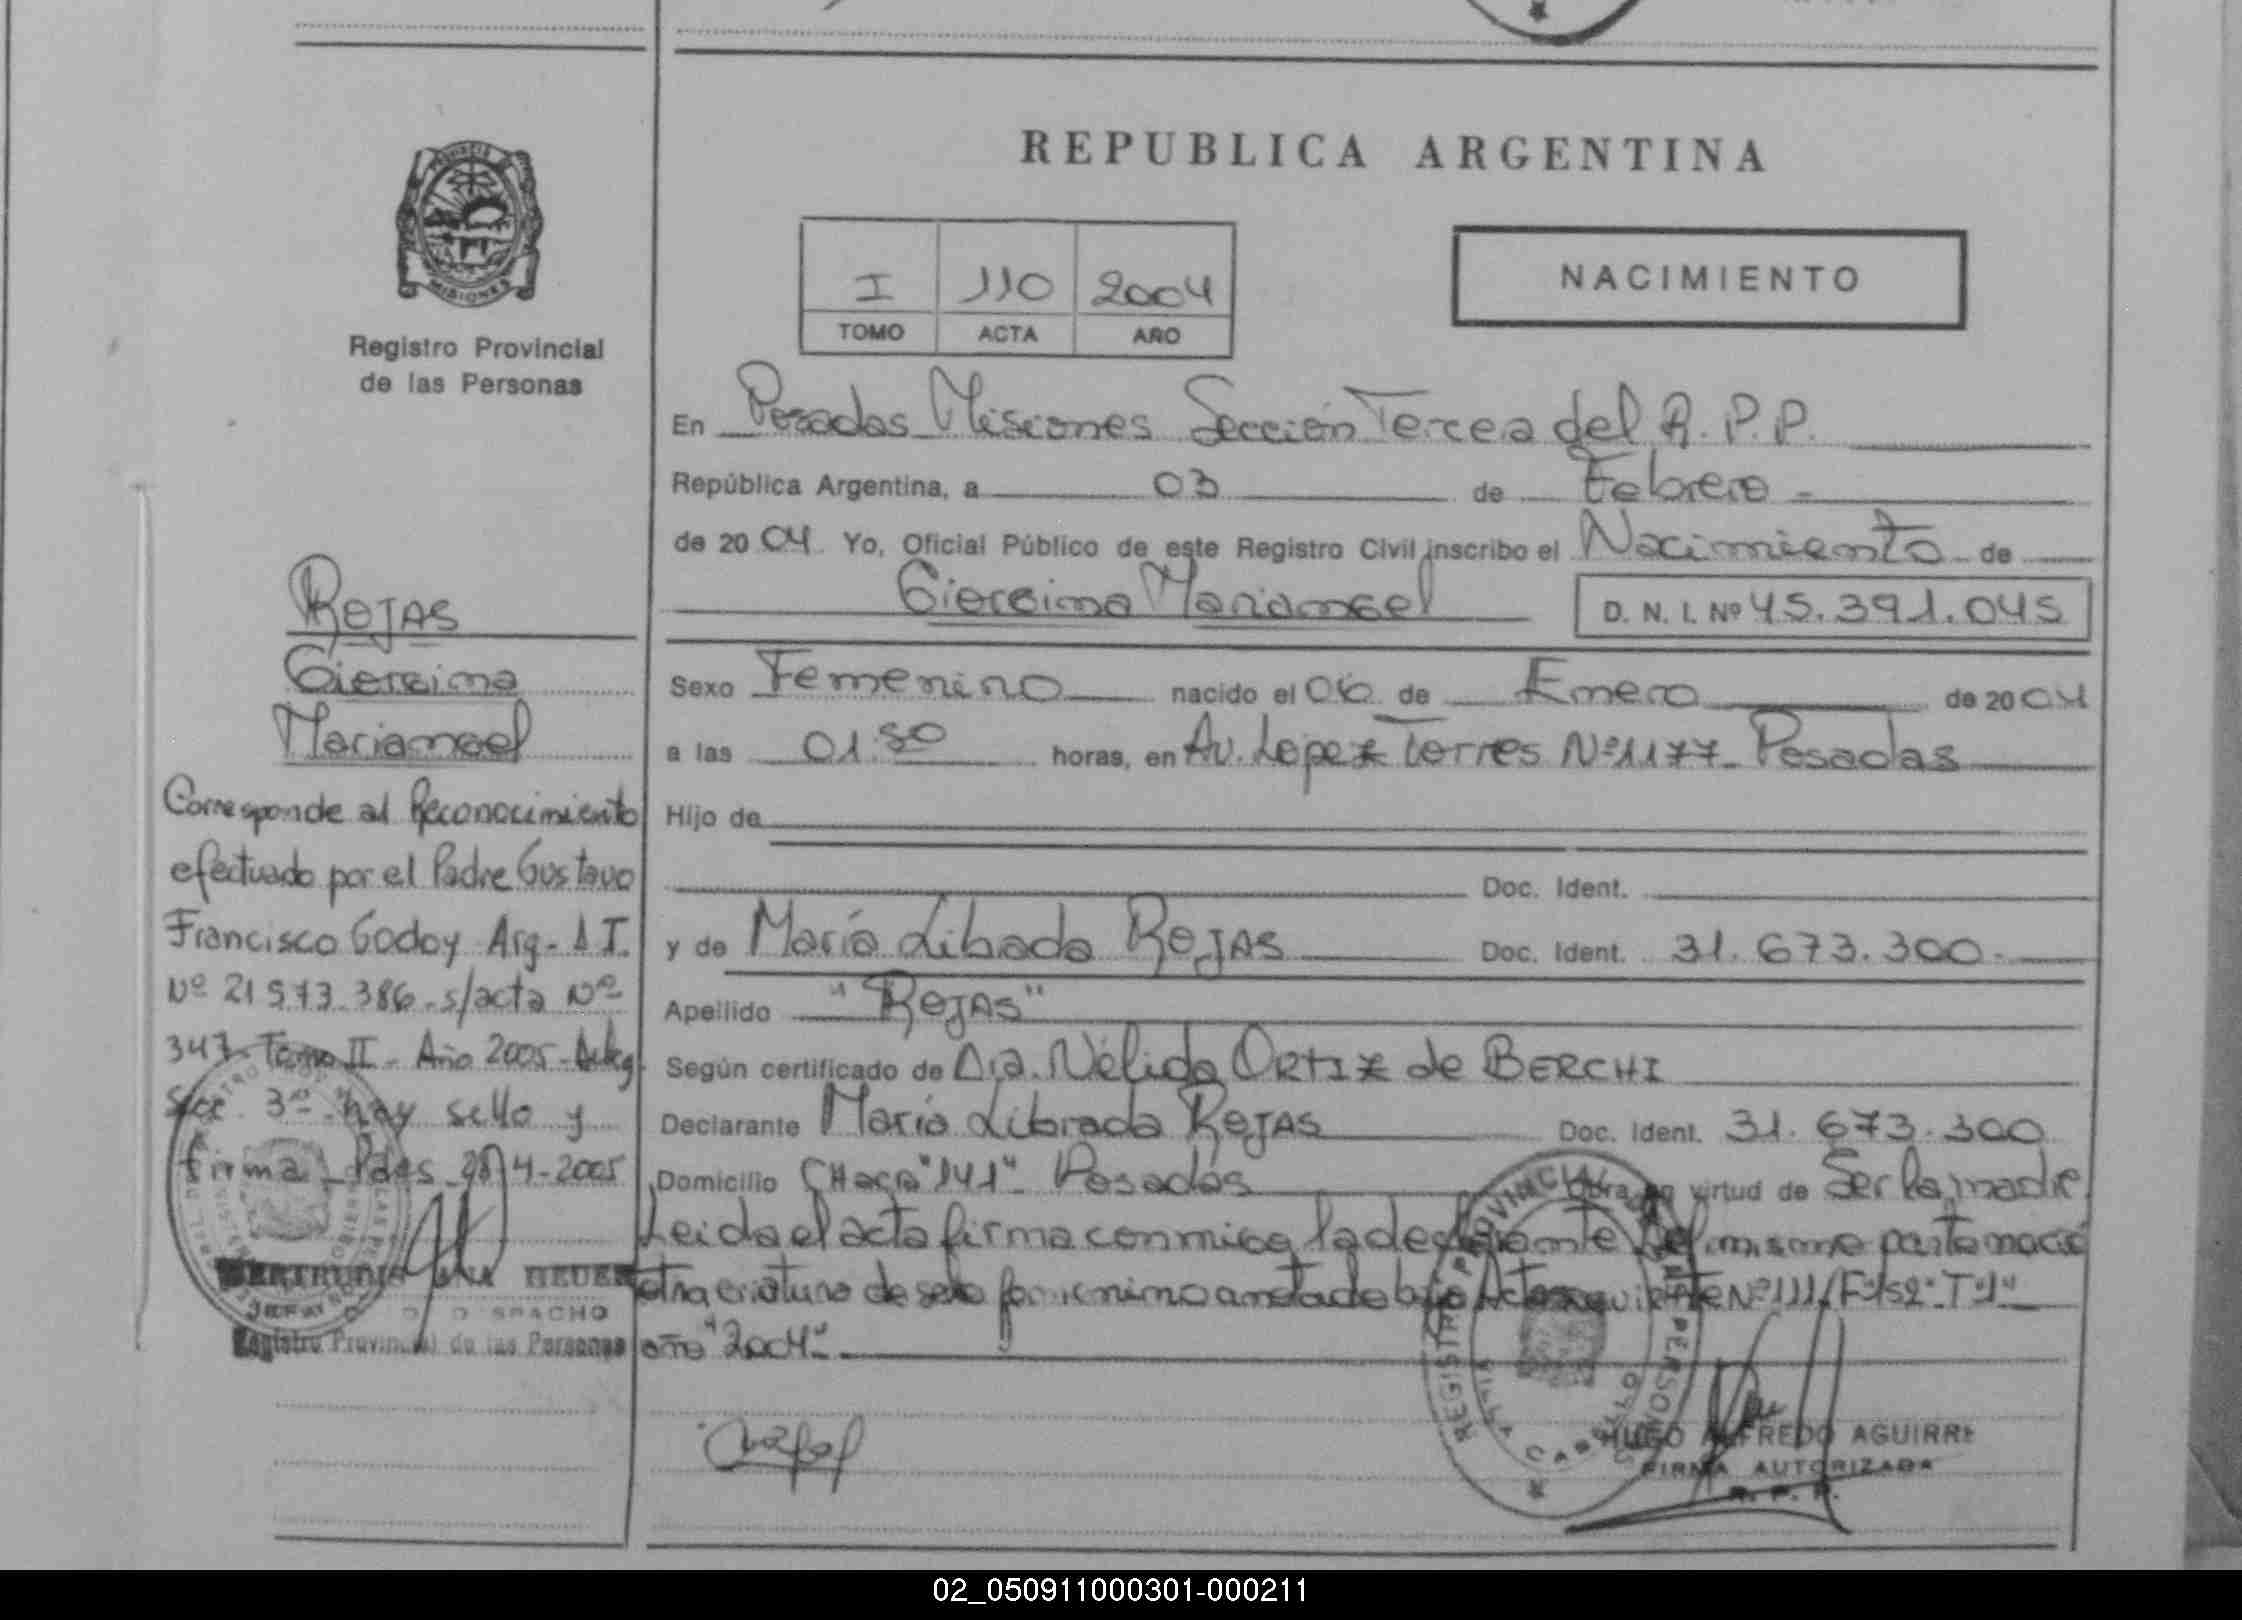 REPUBLICA ARGENTINA
MISIONES
Registro Provincial
de las Personas
I 110 2004
TOMO ACTA AÑO
NACIMIENTO
En Posadas Misiones Sección Tercera del R.P.P.
República Argentina, a 03 de Febrero
de 2004 Yo, Oficial Público de este Registro Civil inscribo el Nacimiento de
Mariamael D. N. I. Nº 45.391.045
Sexo Femenino nacido el 06 de Enero de 2004
a las 01:30 horas, en Av. Lopez Torres Nº 1177 Posadas
Hijo de
Doc. Ident.
y de María Librada ROJAS Doc. Ident. 31.673.300
Apellido "ROJAS"
Según certificado de Dra. Nélida ORTIZ de BERCHI
Declarante María Librada ROJAS Doc. Ident. 31.673.300
Domicilio CHacra "141" Posadas Obra en virtud de Ser la madre
Leida el acta firma conmigo la declarante Del mismo parto nació
otra criatura de sexo femenino anotado bajo Acta siguiente Nº 111/Fº 152 "Tº 1"
año "2004"
ROJAS
Mariamael
Corresponde al Reconocimiento
efectuado por el Padre Gustavo
Francisco Godoy Arg. D.I.
Nº 21.573.386 s/acta Nº
347 Tomo II - Año 2005 - Deleg
Secc. 3ra hay sello y
firma Pdas 4-2005
JEFA DESPACHO
Registro Provincial de las Personas
REGISTRO PROVINCIAL DE LAS PERSONAS
VILLA CABELLO
HUGO ALFREDO AGUIRRE
FIRMA AUTORIZADA
R. P. P.
02_050911000301-000211